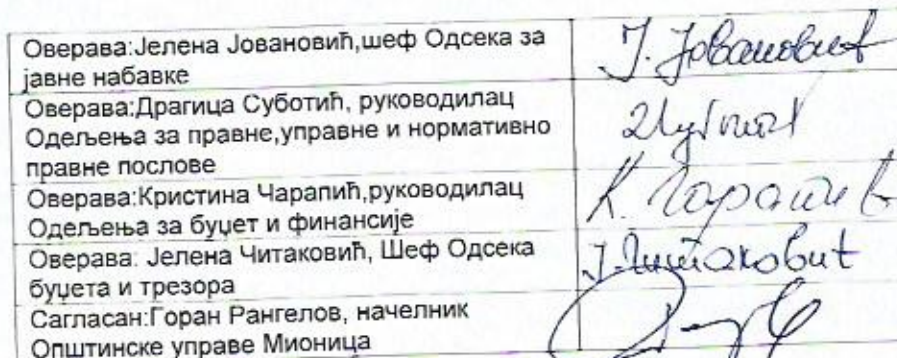 Оверава:Јелена Јовановић,шеф Одсека за
јавне набавке
Ј. Јовановић
Оверава:Драгица Суботић, руководилац
Одељења за правне,управне и нормативно
правне послове
Оверава:Кристина Чарапић,руководилац
Одељења за буџет и финансије
К. Чарапић
Оверава: Јелена Читаковић, Шеф Одсека
буџета и трезора
Ј. Читаковић
Сагласан:Горан Рангелов, начелник
Општинске управе Мионица